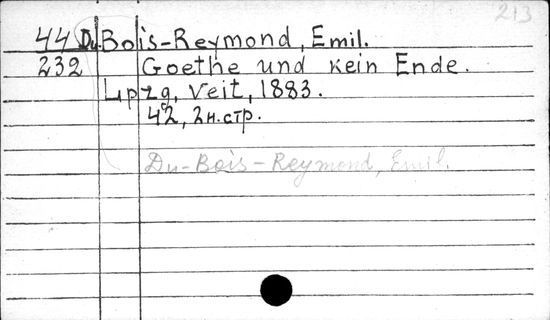 213
44 Du Bois-Reymond, Emil.
232 Goethe und kein Ende.
Lpzg, Veit, 1883.
42, 2н.стр.
Du-Bois-Reymond, Emil.